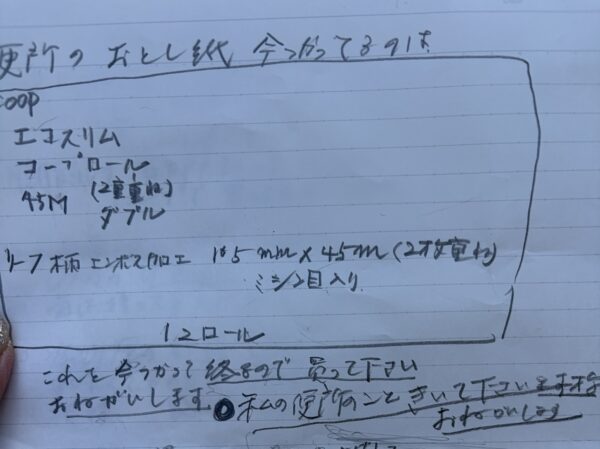 便所のおとし紙 今つかってるのは
coop
エコスリム
コープロール
45M (2重重ね)
ダブル
リーフ柄 エンボス加工 105mm×45m(2枚重ね)
ミシン目入り
12ロール
これを今つかって終るので買って下さい
おねがいします ●私の便所のこときいて下さい
おねがいします